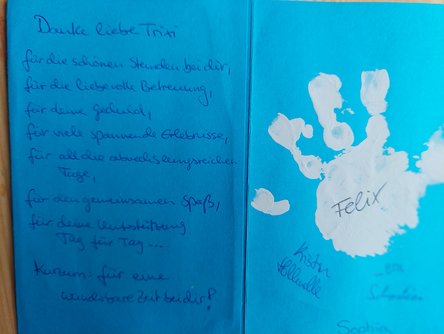 Danke liebe Trixi
für die schönen Stunden bei dir,
für die liebevolle Betreuung,
für deine Geduld,
für viele spannende Erlebnisse,
für all die abwechslungsreichen
Tage,
für den gemeinsamen Spaß,
für deine Unterstützung
Tag für Tag...
Kurzum für eine
wunderbare Zeit bei dir!
Felix
Kristin
Sebastian
Sophia